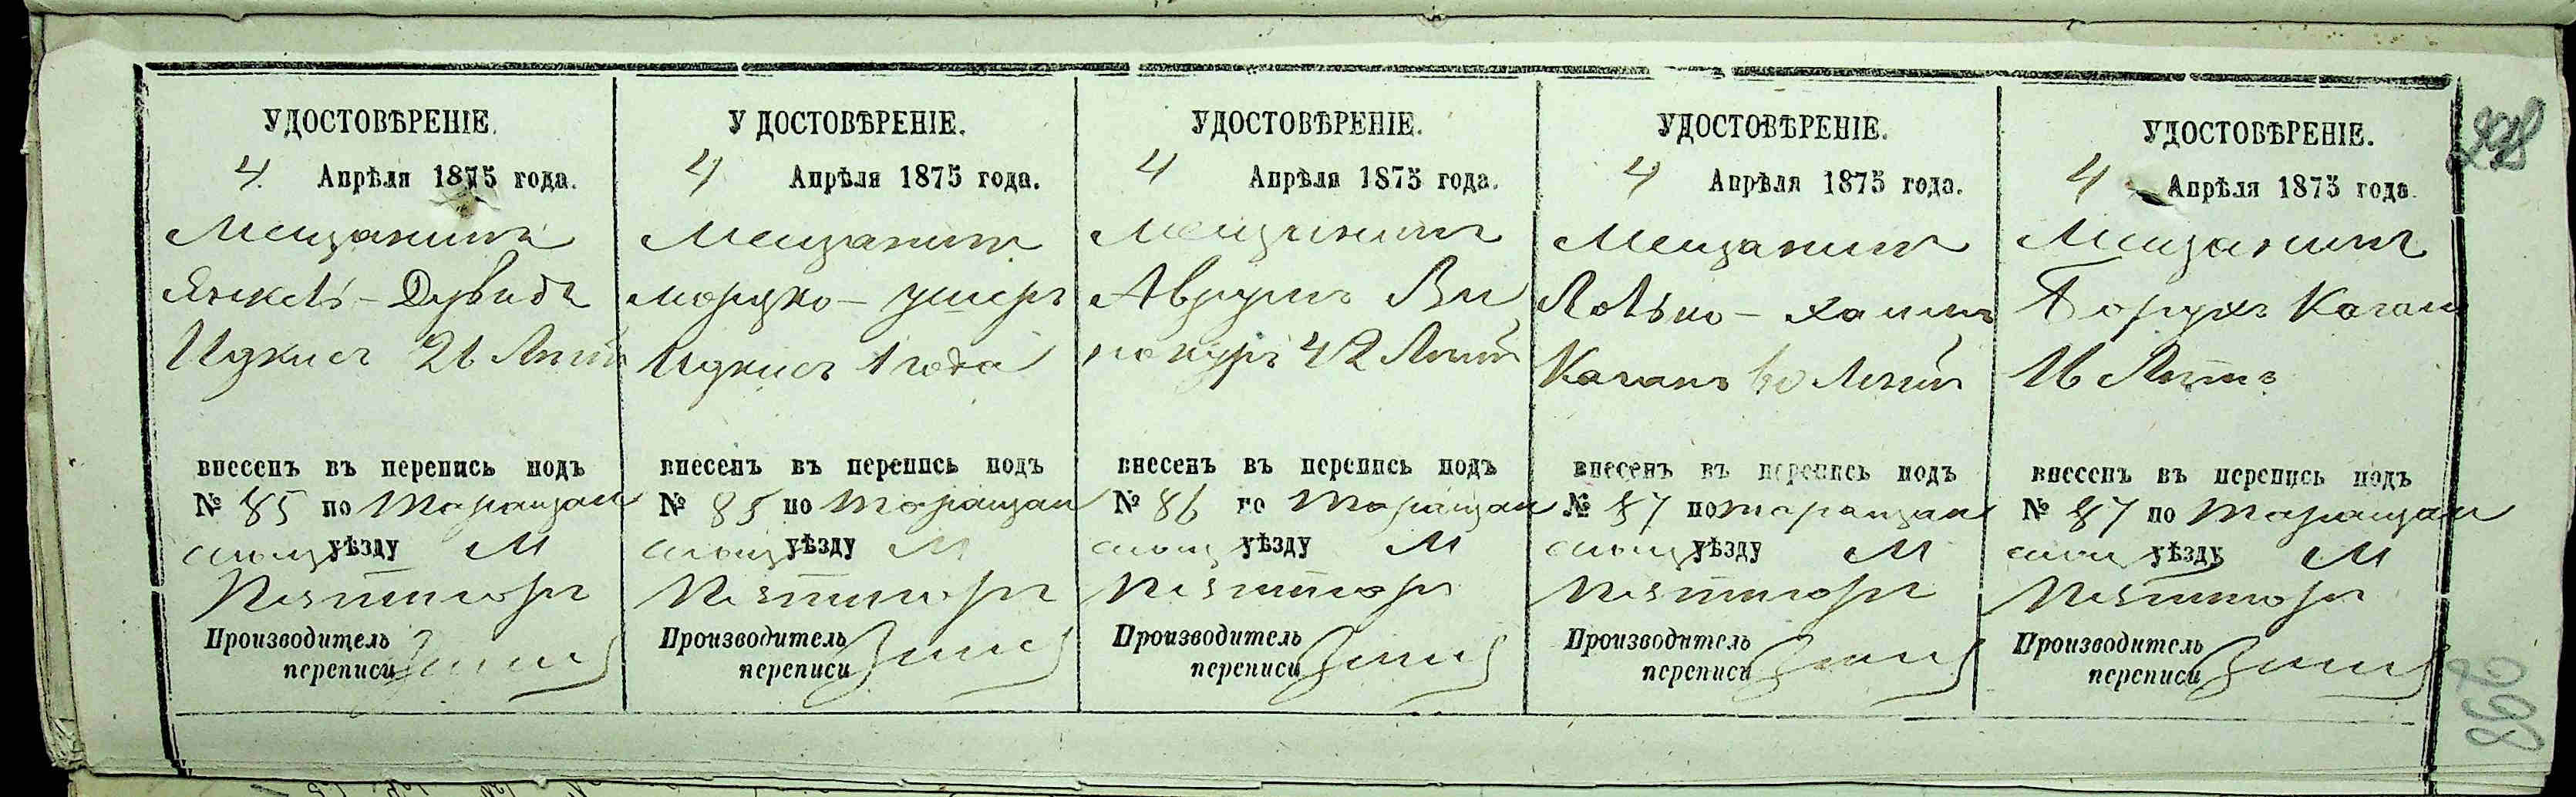 УДОСТОВѢРЕНІЕ.
4 Апрѣля 1875 года.
Мещанинъ
Янкель-Дувидъ
Идкисъ 26 Лѣтъ
внесенъ въ перепись подъ
№ 85 по Таращан
скому уѣзду М
Пятигоръ
Производитель
переписи
У ДОСТОВѢРЕНІЕ.
4 Апрѣля 1875 года.
Мещанинъ
Мортко-Ушеръ
Идкисъ 1 года
внесенъ въ перепись подъ
№ 85 по Таращан
скому уѣзду М
Пятигоръ
Производитель
переписи
УДОСТОВѢРЕНІЕ.
4 Апрѣля 1875 года.
Мещанинъ
Аврумъ Ви
нокуръ 42 Лѣтъ
внесенъ въ перепись подъ
№ 86 по Таращан
скому уѣзду М
Пятигоръ
Производитель
переписи
УДОСТОВѢРЕНІЕ.
4 Апрѣля 1875 года.
Мещанинъ
Хаимъ
Каганъ 60 Лѣтъ
внесенъ въ перепись подъ
№ 87 по Таращан
скому уѣзду М
Пятигоръ
Производитель
переписи
УДОСТОВѢРЕНІЕ.
4 Апрѣля 1875 года.
Мещанинъ
Борухъ Каган
16 Лѣтъ
внесенъ въ перепись подъ
№ 87 по Таращан
ском уѣзду М
Пятигоръ
Производитель
переписи
298